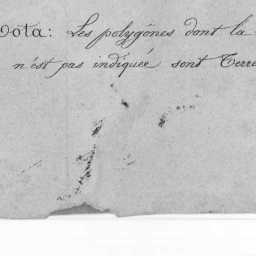 Nota: Les polygônes dont la
n'est pas indiquée sont Terre